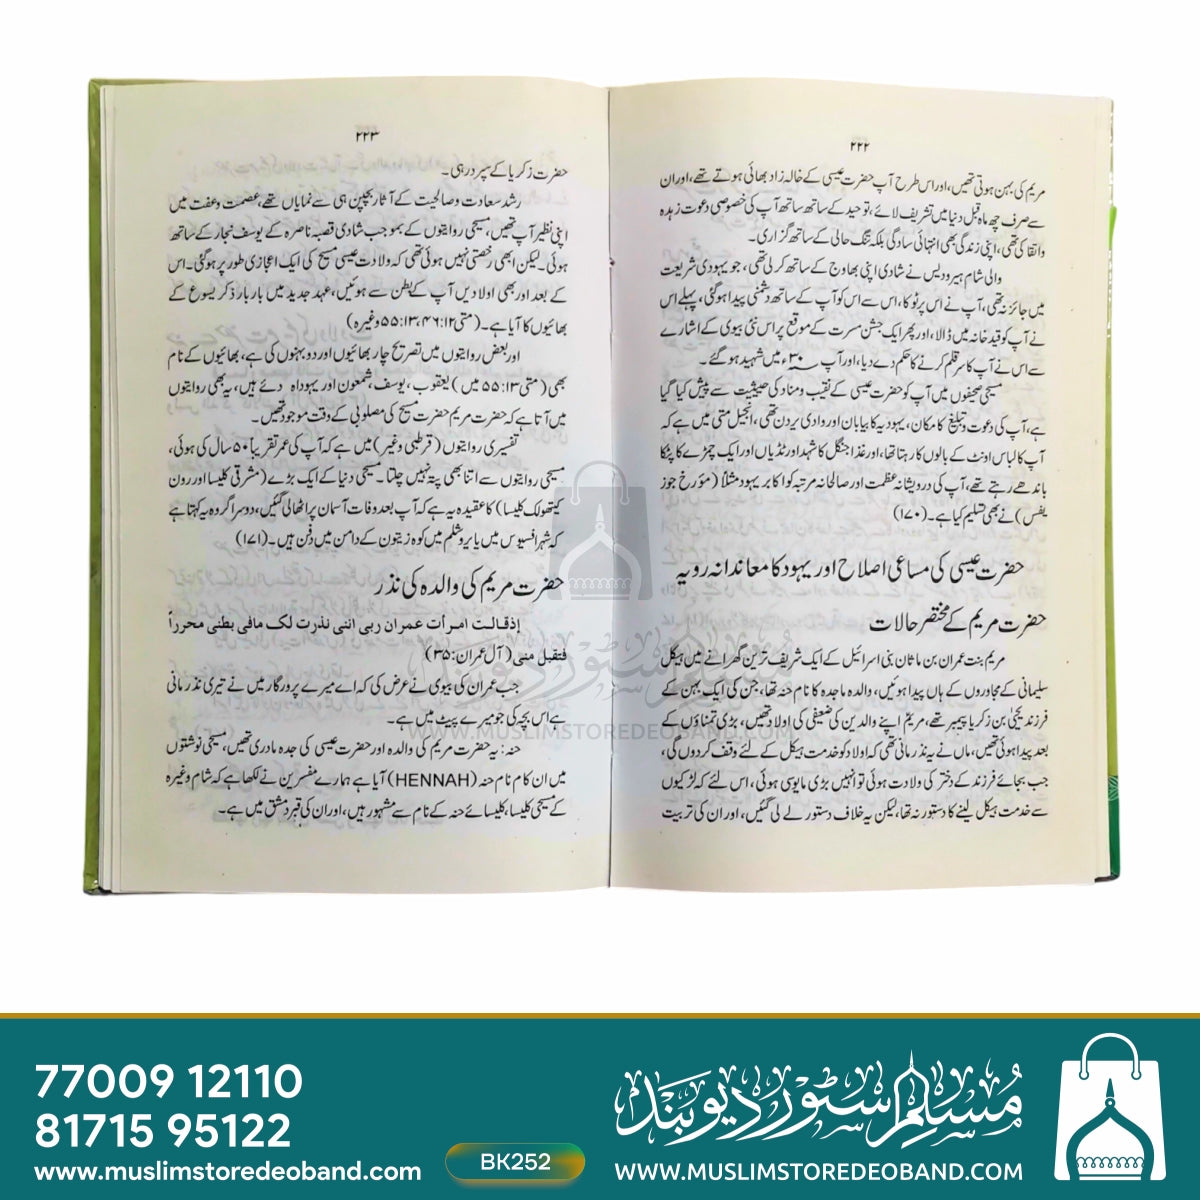 ۲۲۲
مریم کی بہن ہوتی تھیں، اور اس طرح آپ حضرت عیسی کے خالہ زاد بھائی ہوتے تھے، اور ان
سے صرف چھ ماہ قبل دنیا میں تشریف لائے، توحید کے ساتھ ساتھ آپ کی خصوصی دعوت زہدہ
واتقا کی تھی، اپنی زندگی بھی انتہائی سادگی بلکہ تنگ حالی کے ساتھ گزاری۔
والی شام ہیرودیس نے شادی اپنی بھاوج کے ساتھ کرلی تھی، جو یہودی شریعت
میں جائز نہ تھی، آپ نے اس پر ٹوکا، اس سے اس کو آپ کے ساتھ دشمنی پیدا ہوگئی، پہلے اس
نے آپ کو قید خانہ میں ڈالا، اور پھر ایک جشن مسرت کے موقع پر اس نئی بیوی کے اشارے
سے اس نے آپ کا سر قلم کرنے کا حکم دے دیا، اور آپ ۳۰ء میں شہید ہوگئے۔
مسیحی صحیفوں میں آپ کو حضرت عیسی کے نقیب ومناد کی حیثیت سے پیش کیا گیا
ہے، آپ کی دعوت و تبلیغ کا مکان، یہودیہ کا بیابان اور وادی یردن تھی، انجیل متی میں ہے کہ
آپ کا لباس اونٹ کے بالوں کا رہتا تھا، اور غذا جنگل کا شہد اور ٹڈیاں اور ایک چمڑے کا پٹکا
باندھے رہتے تھے، آپ کی درویشانہ عظمت اور صالحانہ مرتبہ کو اکابر یہود مثلاً (مؤرخ جوز
یفس) نے بھی تسلیم کیا ہے۔ (۱۷۰)
حضرت عیسی کی مساعی اصلاح اور یہود کا معاندانہ رویہ
حضرت مریم کے مختصر حالات
مریم بنت عمران بن ماثان بنی اسرائیل کے ایک شریف ترین گھرانے میں ہیکل
سلیمانی کے مجاوروں کے ہاں پیدا ہوئیں، والدہ ماجدہ کا نام حنہ تھا، جن کی ایک بہن کے
فرزند یحییٰ بن زکریا پیمبر تھے، مریم اپنے والدین کی ضعیفی کی اولاد تھیں، بڑی تمناؤں کے
بعد پیدا ہوئی تھیں، ماں نے یہ نذر مانی تھی کہ اولاد کو خدمت ہیکل کے لئے وقف کردوں گی،
جب بجائے فرزند کے دختر کی ولادت ہوئی تو انہیں بڑی مایوسی ہوئی، اس لئے کہ لڑکیوں
سے خدمت ہیکل لینے کا دستور نہ تھا، لیکن یہ خلاف دستور لے لی گئیں، اور ان کی تربیت
۲۲۳
حضرت زکریا کے سپرد رہی۔
رشد سعادت و صالحیت کے آثار بچپن ہی سے نمایاں تھے، عصمت وعفت میں
اپنی نظیر آپ تھیں، مسیحی روایتوں کے بموجب شادی قصبہ ناصرہ کے یوسف نجار کے ساتھ
ہوئی۔ لیکن ابھی رخصتی نہیں ہوئی تھی کہ ولادت عیسی مسیح کی ایک اعجازی طور پر ہوگئی۔ اس
کے بعد اور بھی اولادیں آپ کے بطن سے ہوئیں، عہد جدید میں بار بار ذکر یسوع کے
بھائیوں کا آیا ہے۔ (متی ۱۲:۴۶، ۱۳:۵۵ وغیرہ)
اور بعض روایتوں میں تصریح چار بھائیوں اور دو بہنوں کی ہے، بھائیوں کے نام
بھی (متی ۱۳:۵۵ میں) یعقوب، یوسف، شمعون اور یہوداہ دئے ہیں، یہ بھی روایتوں
میں آتا ہے کہ حضرت مریم حضرت مسیح کی مصلوبی کے وقت موجود تھیں۔
تفسیری روایتوں (قرطبی وغیر) میں ہے کہ آپ کی عمر تقریباً ۵۰ سال کی ہوئی،
مسیحی روایتوں سے اتنا بھی پتہ نہیں چلتا۔ مسیحی دنیا کے ایک بڑے (مشرقی کلیسا اور رون
کیتھولک کلیسا) کا عقیدہ یہ ہے کہ آپ بعد وفات آسمان پر اٹھالی گئیں، دوسرا گروہ یہ کہتا ہے
کہ شہر افسیوس میں یا یروشلم میں کوہ زیتون کے دامن میں دفن ہیں۔ (۱۷۱)
حضرت مریم کی والدہ کی نذر
إذقالت امرأت عمران ربی اننی نذرت لک مافی بطنی محرراً
فتقبل منی (آل عمران: ۳۵)
جب عمران کی بیوی نے عرض کی کہ اے میرے پرورگار میں نے تیری نذر مانی
ہے اس بچہ کی جو میرے پیٹ میں ہے۔
حنہ: یہ حضرت مریم کی والدہ اور حضرت عیسی کی جدہ مادری تھیں، مسیحی نوشتوں
میں ان کا م نام حنہ (HENNAH) آیا ہے ہمارے مفسرین نے لکھا ہے کہ شام وغیرہ
کے مسیحی کلیسا، کلیسائے حنہ کے نام سے مشہور ہیں، اور ان کی قبر دمشق میں ہے۔
مسلم سٹور دیوبند
WWW.MUSLIMSTOREDEOBAND.COM
77009 12110
81715 95122
www.muslimstoredeoband.com
BK252
مسلم سٹور دیوبند
WWW.MUSLIMSTOREDEOBAND.COM